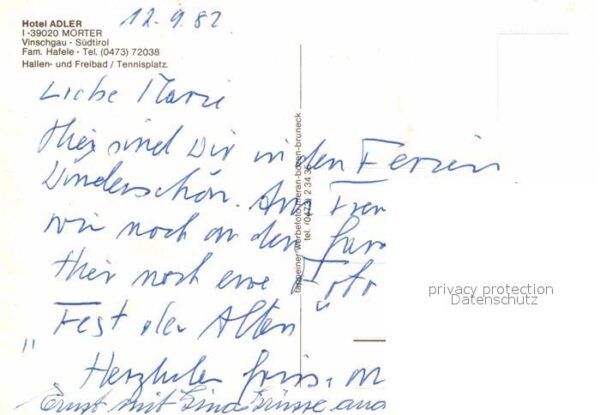 Hotel ADLER
I-39020 MORTER
Vinschgau - Südtirol
Fam. Hafele - Tel. (0473) 72038
Hallen- und Freibad / Tennisplatz.
12.9.82
Liebe Marie
Hier sind Wir in den Ferien
Wunderschön. Am
wir noch an den
Hier noch eine Foto
"Fest der Alten"
Herzliche
Ernst mit Lina Grüsse auc
tappeiner werbefoto meran-bozen-bruneck
tel. (0473)
privacy protection
Datenschutz